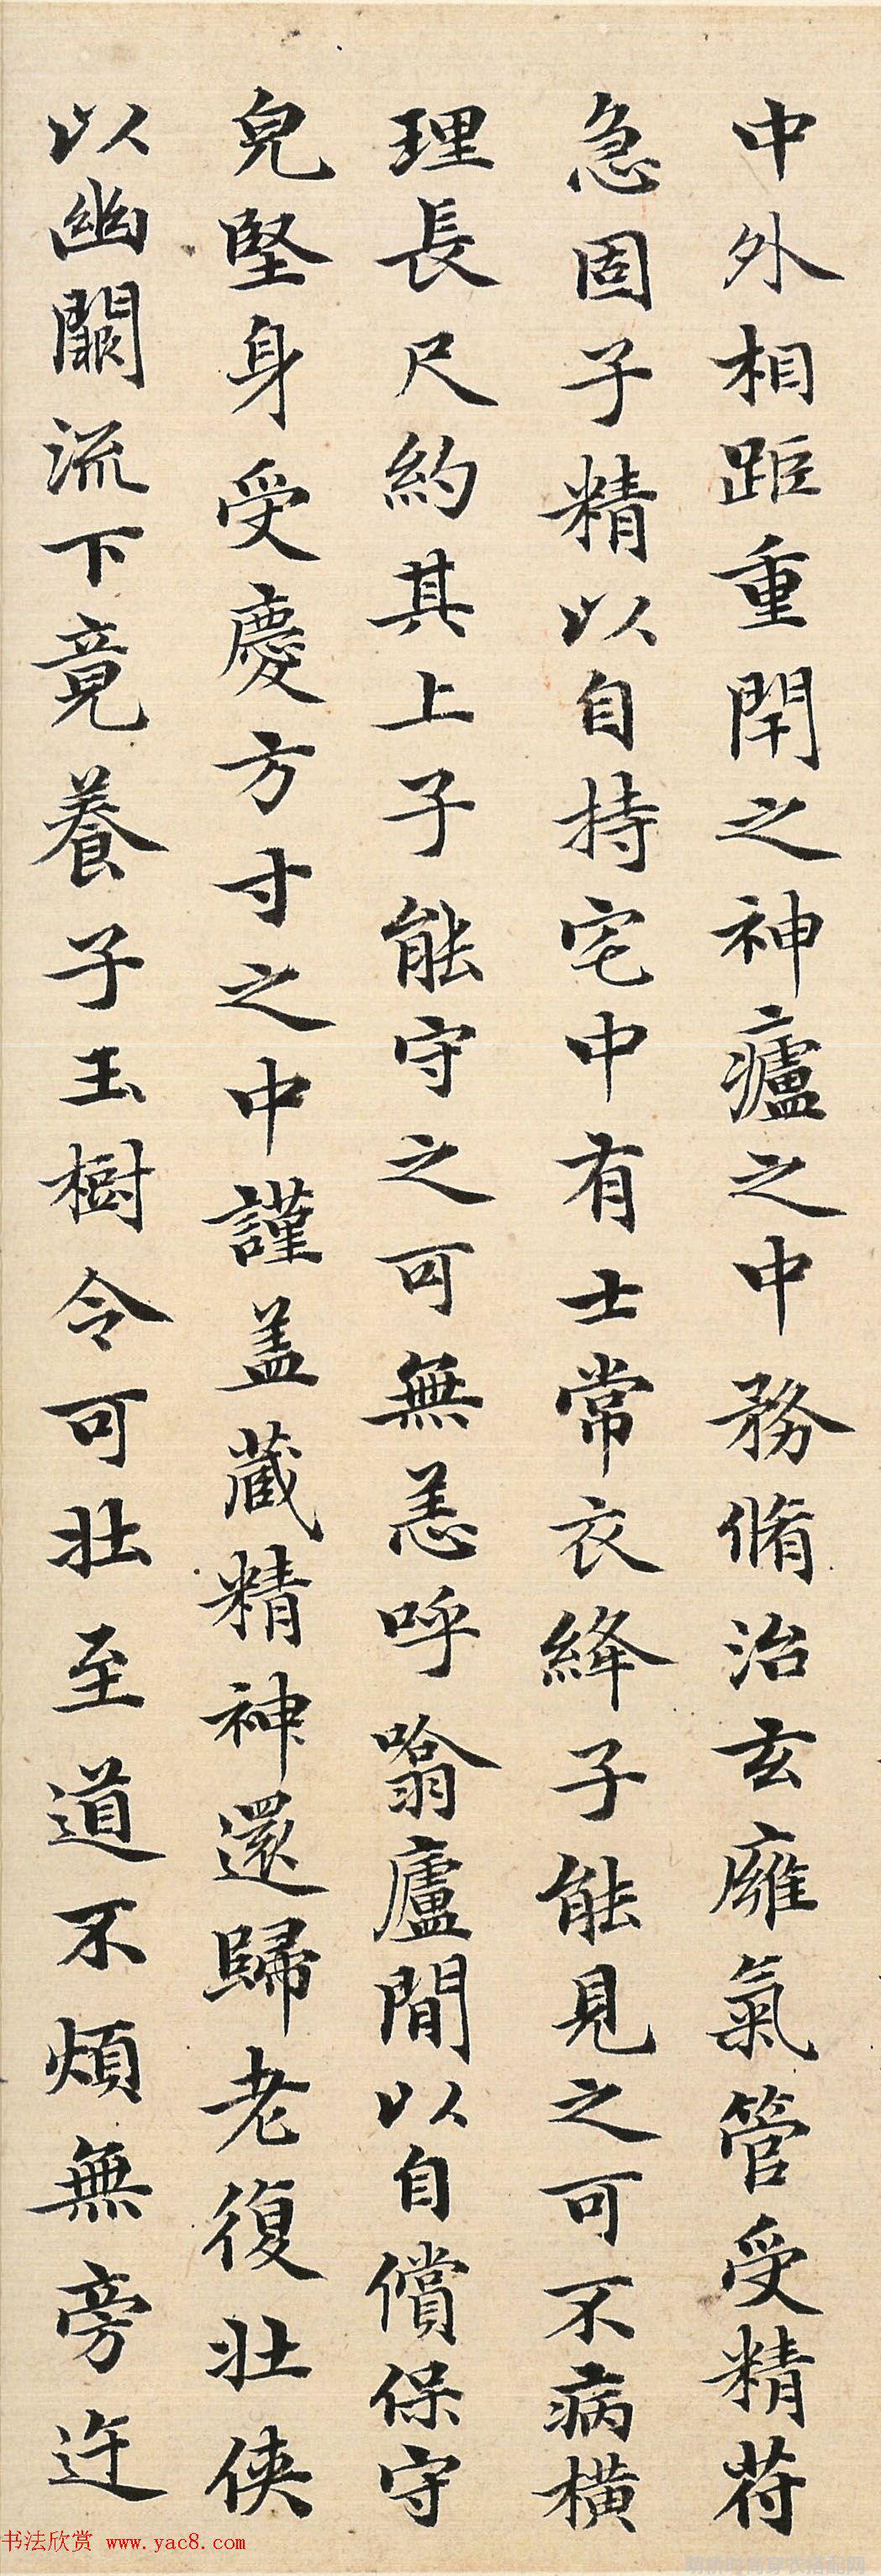 中外相距重閇之神廬之中務脩治玄廱氣管受精苻
急固子精以自持宅中有士常衣絳子能見之可不病橫
理長尺約其上子能守之可無恙呼噏廬閒以自償保守
皃堅身受慶方寸之中謹盖藏精神還歸老復壯俠
以幽闕流下竟養子玉樹令可壯至道不煩無旁迕
书法欣赏 www.yac8.com